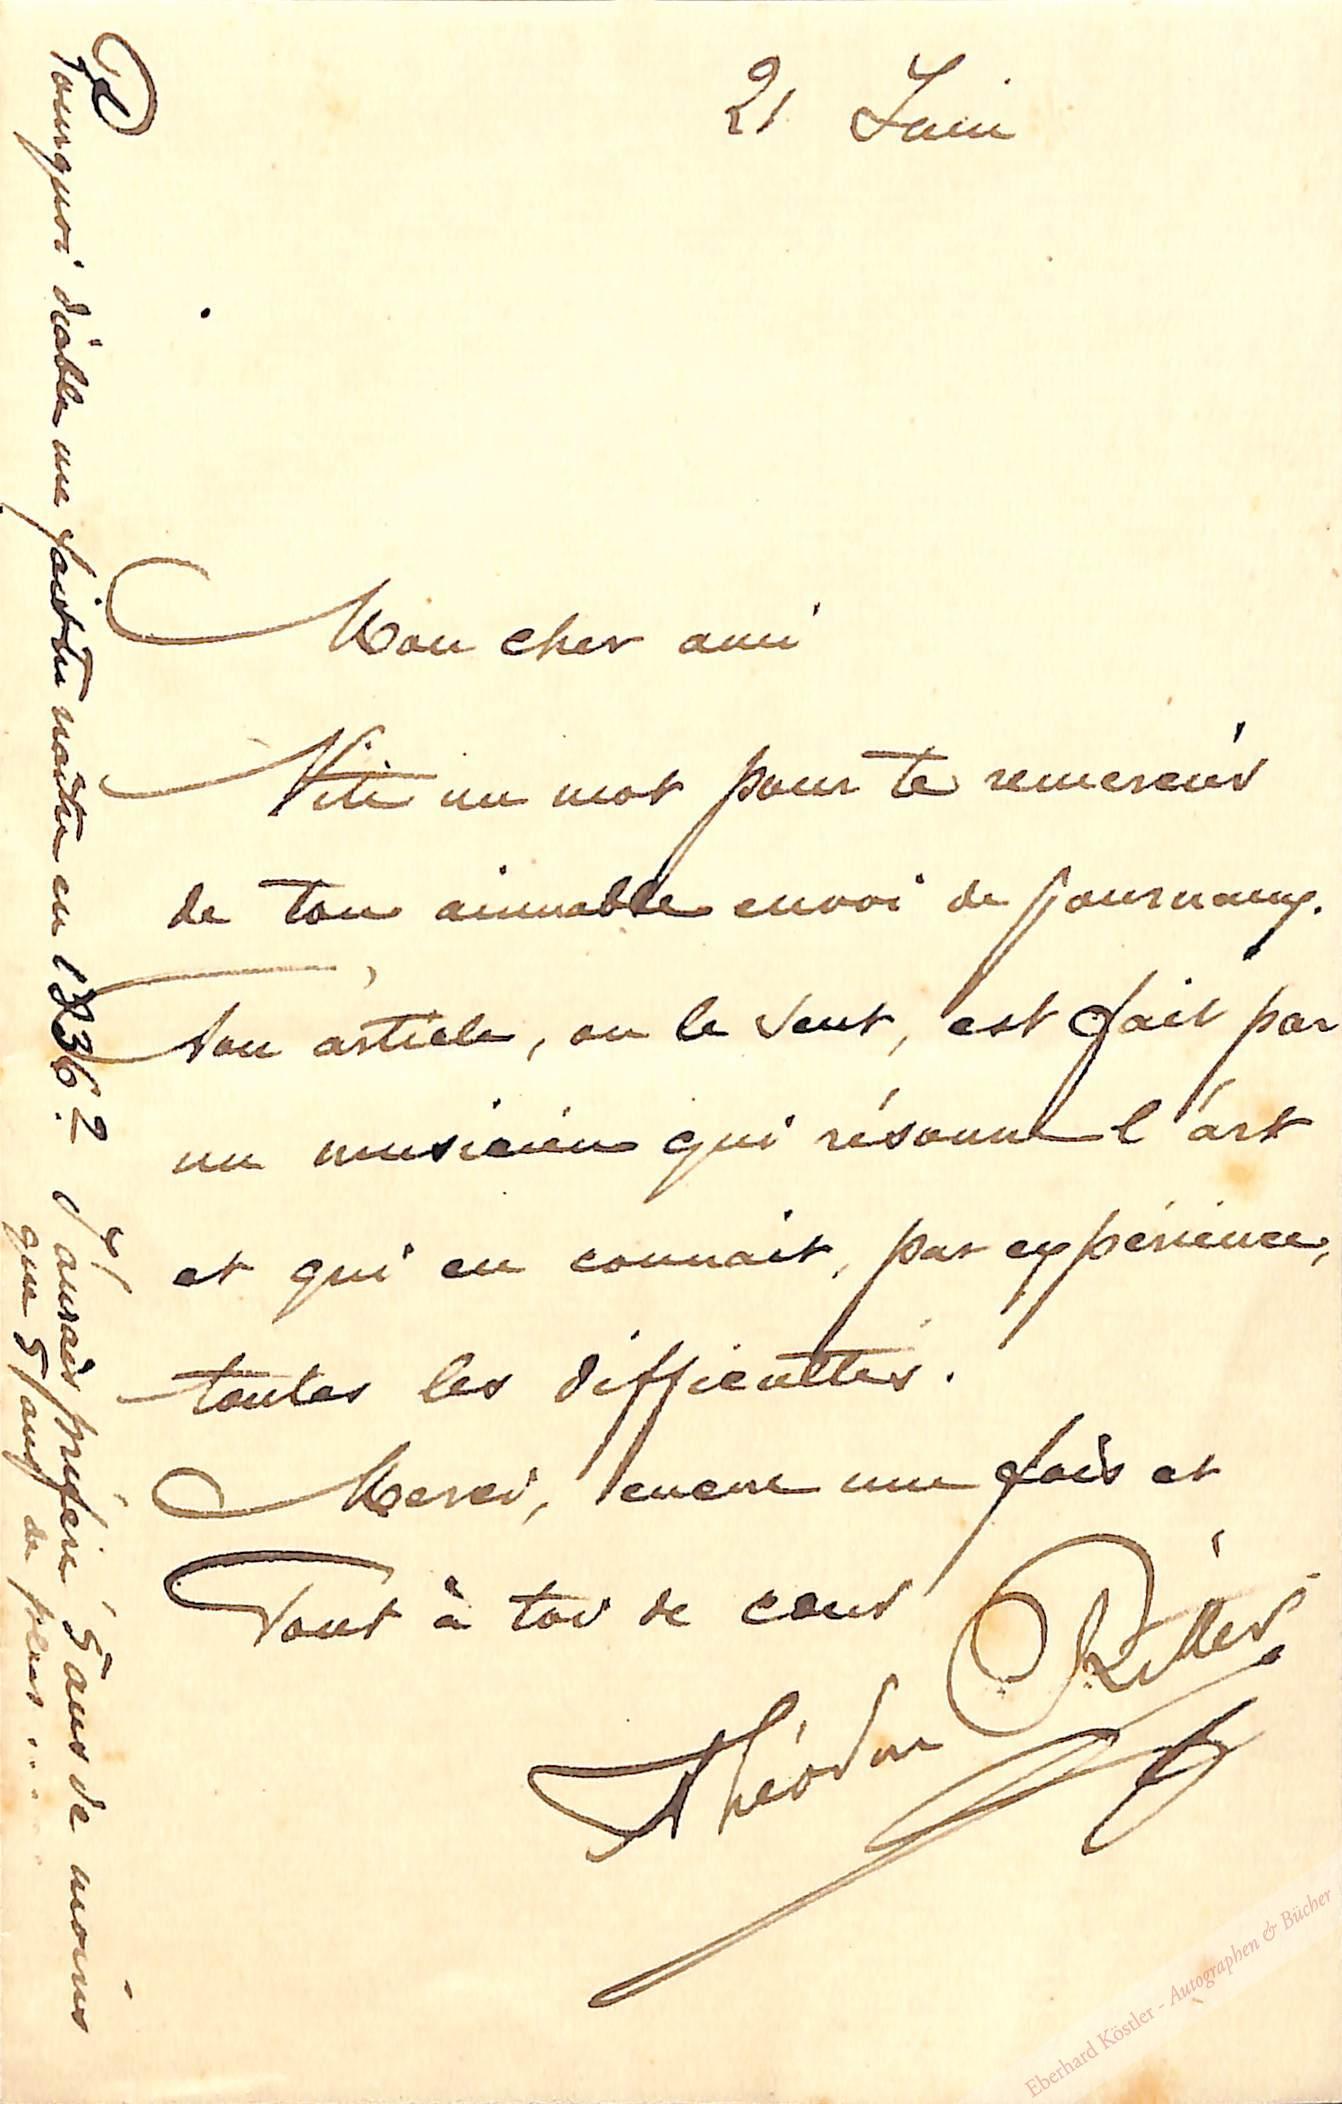 21 Juin
Mon cher ami
Vite un mot pour te remercier
de ton aimable envoi de journaux.
Ton article, on le sent, est fait par
un musicien qui résonne l'art
et qui en connait, par expérience,
toutes les difficultés.
Merci, encore une fois et
Tout à toi de cœur
Théodore Ritter
Pourquoi diable me faites naître en 1836? J'aurais préféré 5 ans de moins
que 5 ans de plus...
Eberhard Köstler - Autographen & Bücher